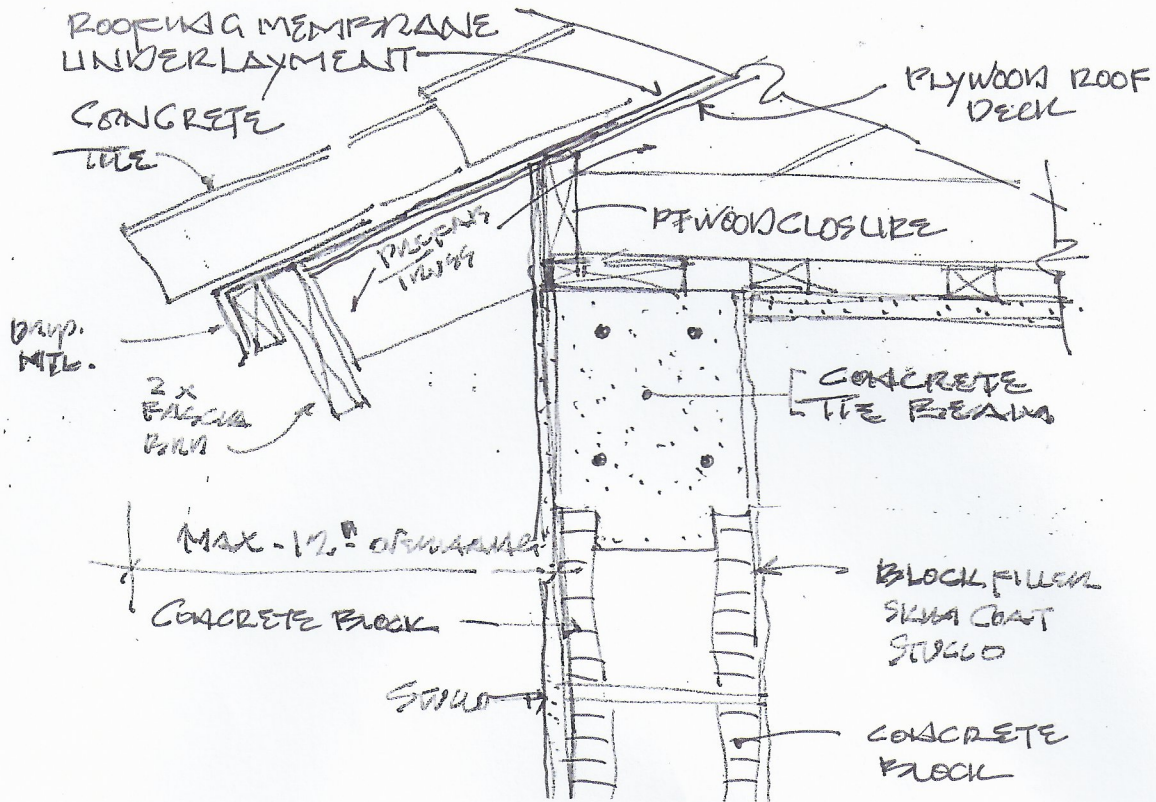 ROOFING MEMBRANE
UNDERLAYMENT
CONCRETE
TILE
PLYWOOD ROOF
DECK
PT WOOD CLOSURE
TRUSS
DRIP.
MTL.
2 x
FASCIA
CONCRETE
TIE BEAM
MAX. 12"
CONCRETE BLOCK
BLOCK FILLER
SKIM COAT
STUCCO
STUCCO
CONCRETE
BLOCK